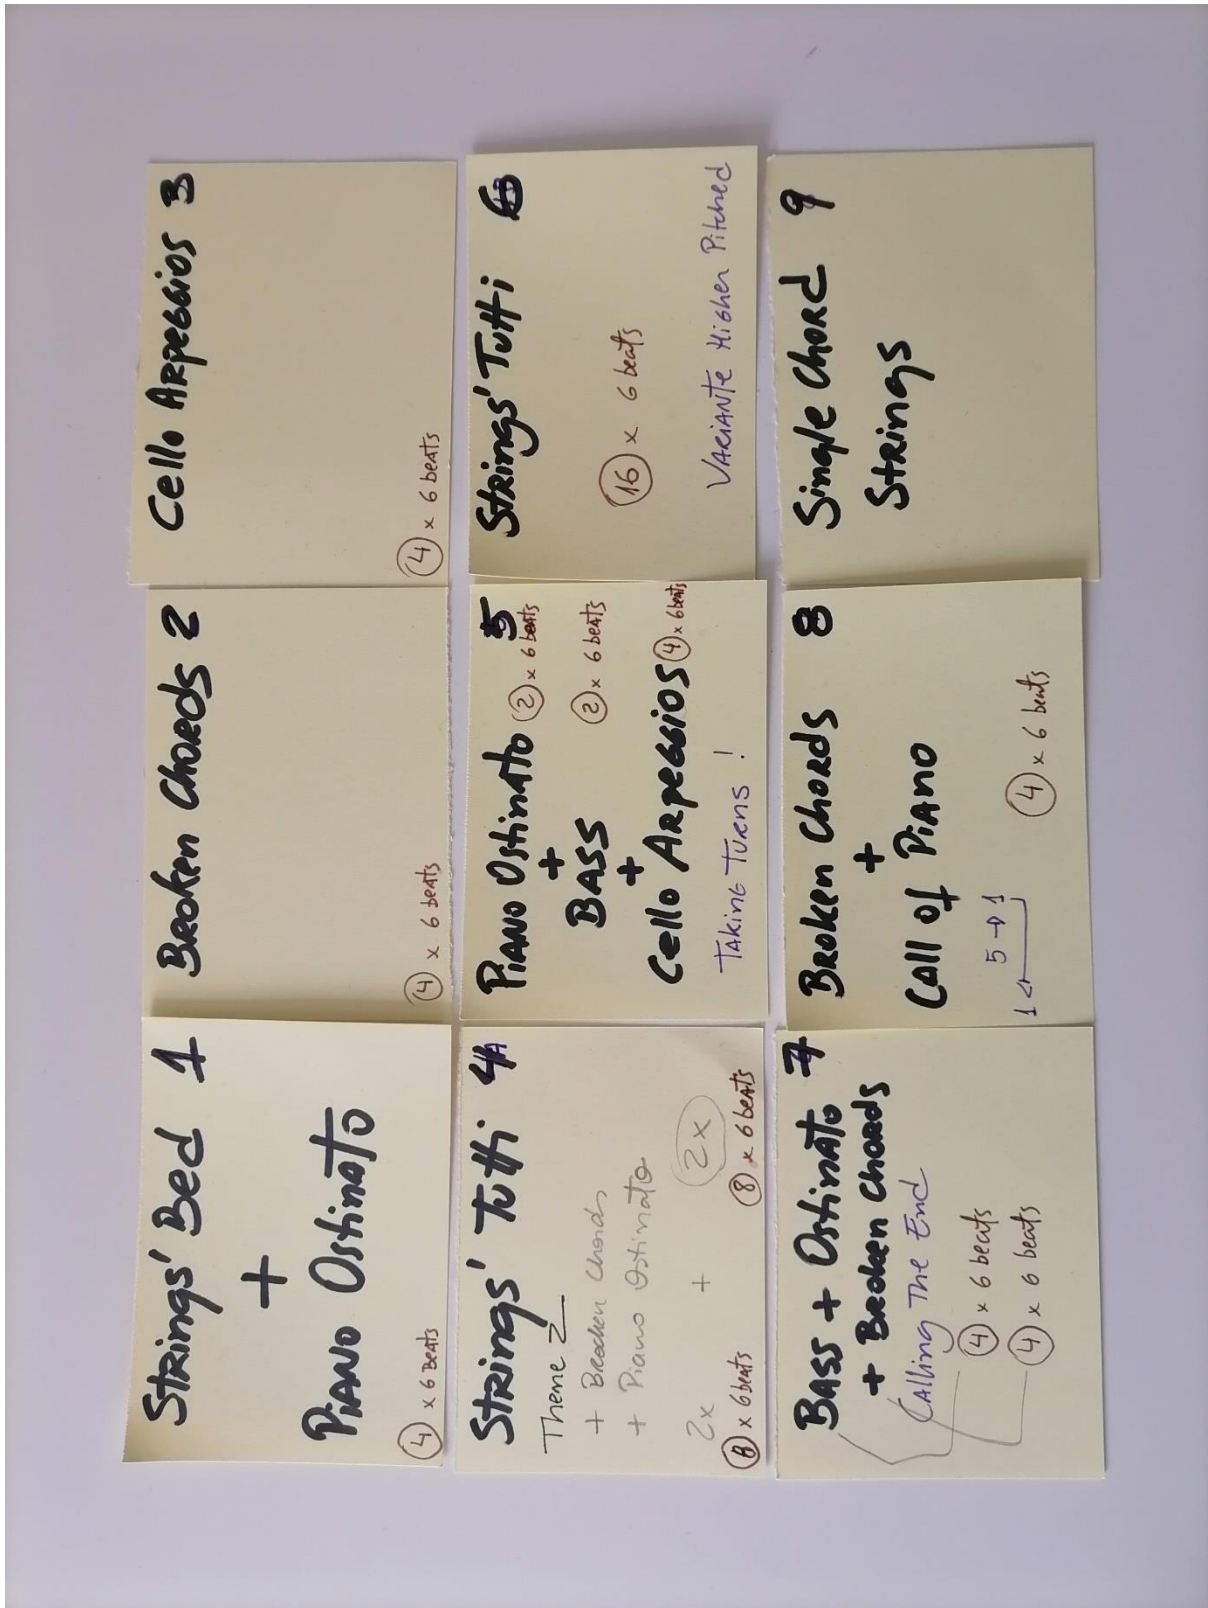 Strings' Bed 1
+
Piano Ostinato
(4) x 6 beats
Broken Chords 2
(4) x 6 beats
Cello Arpeggios 3
(4) x 6 beats
Strings' Tutti 4A
Theme 2
+ Brocken Chords
+ Piano Ostinato
2x + (2x)
(8) x 6 beats (8) x 6 beats
Piano Ostinato (2) x 6 beats 5
+
Bass (2) x 6 beats
+
Cello Arpeggios (4) x 6 beats
Taking Turns !
Strings' Tutti
(16) x 6 beats
Variante Higher Pitched
Bass + Ostinato 7
+ Broken Chords
Calling The End
(4) x 6 beats
(4) x 6 beats
Broken Chords 8
+
Call of Piano
1 ← 5 → 1
(4) x 6 beats
Single Chord 9
Strings